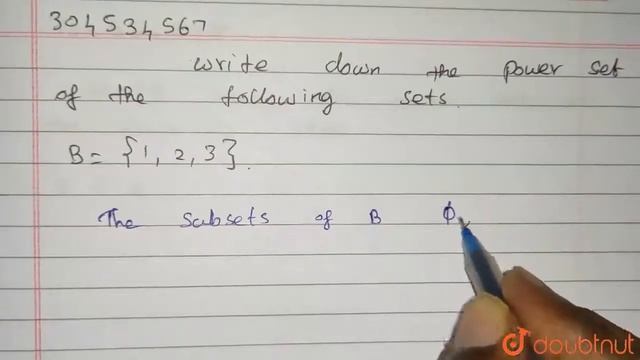 304534567
Write down the power set
of the following sets.
B = {1, 2, 3}.
The subsets of B ϕ,
doubtnut